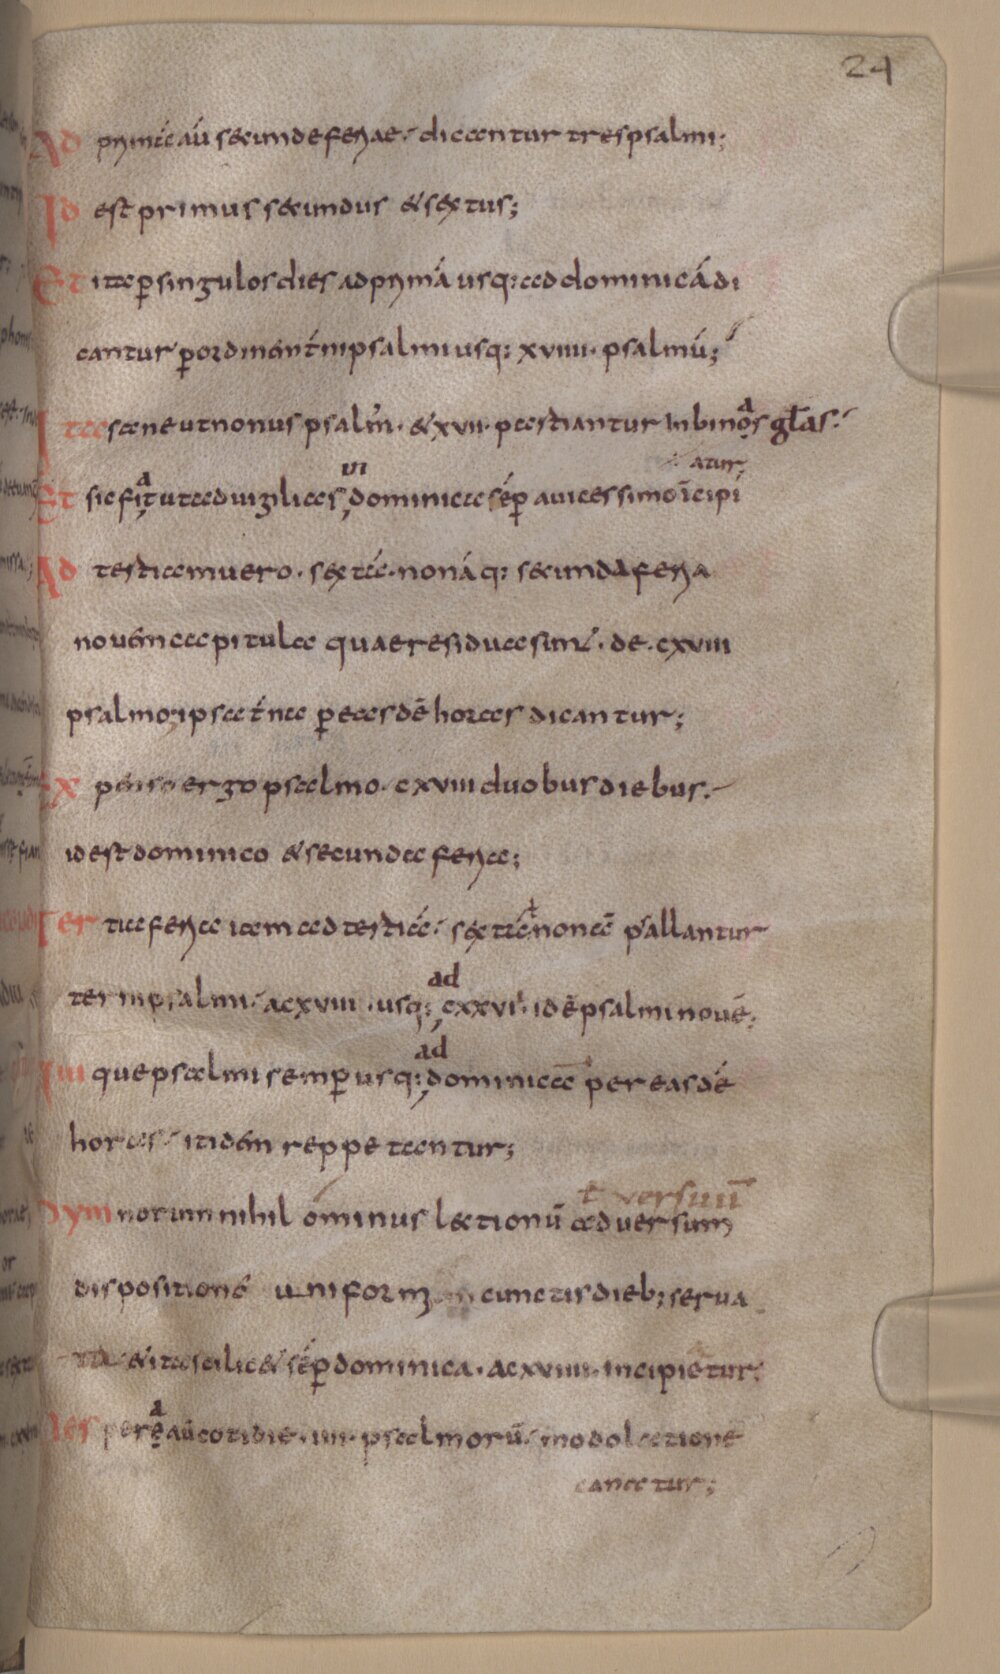 24
Ad primã aũ secunde feriae· dicantur tres psalmi;
Id est primus secundus & sextus;
Et ita ꝑ singulos dies ad primã usq: ad dominicã di
cantur ꝑ ordinem trini psalmi usq: xviiii· psalmũ;
Ita sane ut nonus psalm̃· & xvii· partiantur In binos glãs·
a
atur;
Et sic fit ut ad uigilias, dominica sẽꝑ a uicessimo ĩcipi
a
in
Ad tertiam uero· sextã· nonãq: secunda feria
nouem capitula quae residua sunt· de· cxviii
psalmo; ipsa trina ꝑ easdẽ horas dicantur;
Ex penso ergo psalmo· cxviii duobus diebus·
id est dominico & secunda feria;
Tertia feria iam ad tertiã· sextã nonã psallantur
terni psalmi· a cxviiii· usq:, cxxvii· id ẽ psalmi nouẽ;
ad
Qui que psalmi semꝑ usq:, dominicã per easdẽ
ad
horas· itidem reppetantur;
ł versuũ
Ymnorum nihil ominus lectionũ ad uersum
dispositionẽ uniform cunctis dieb; serua
ta· & ita scilic& sẽꝑ dominica· a cxviiii· incipietur·
Uespere aũ cotidie· iiii· psalmorũ· modolatione
a
canatur;